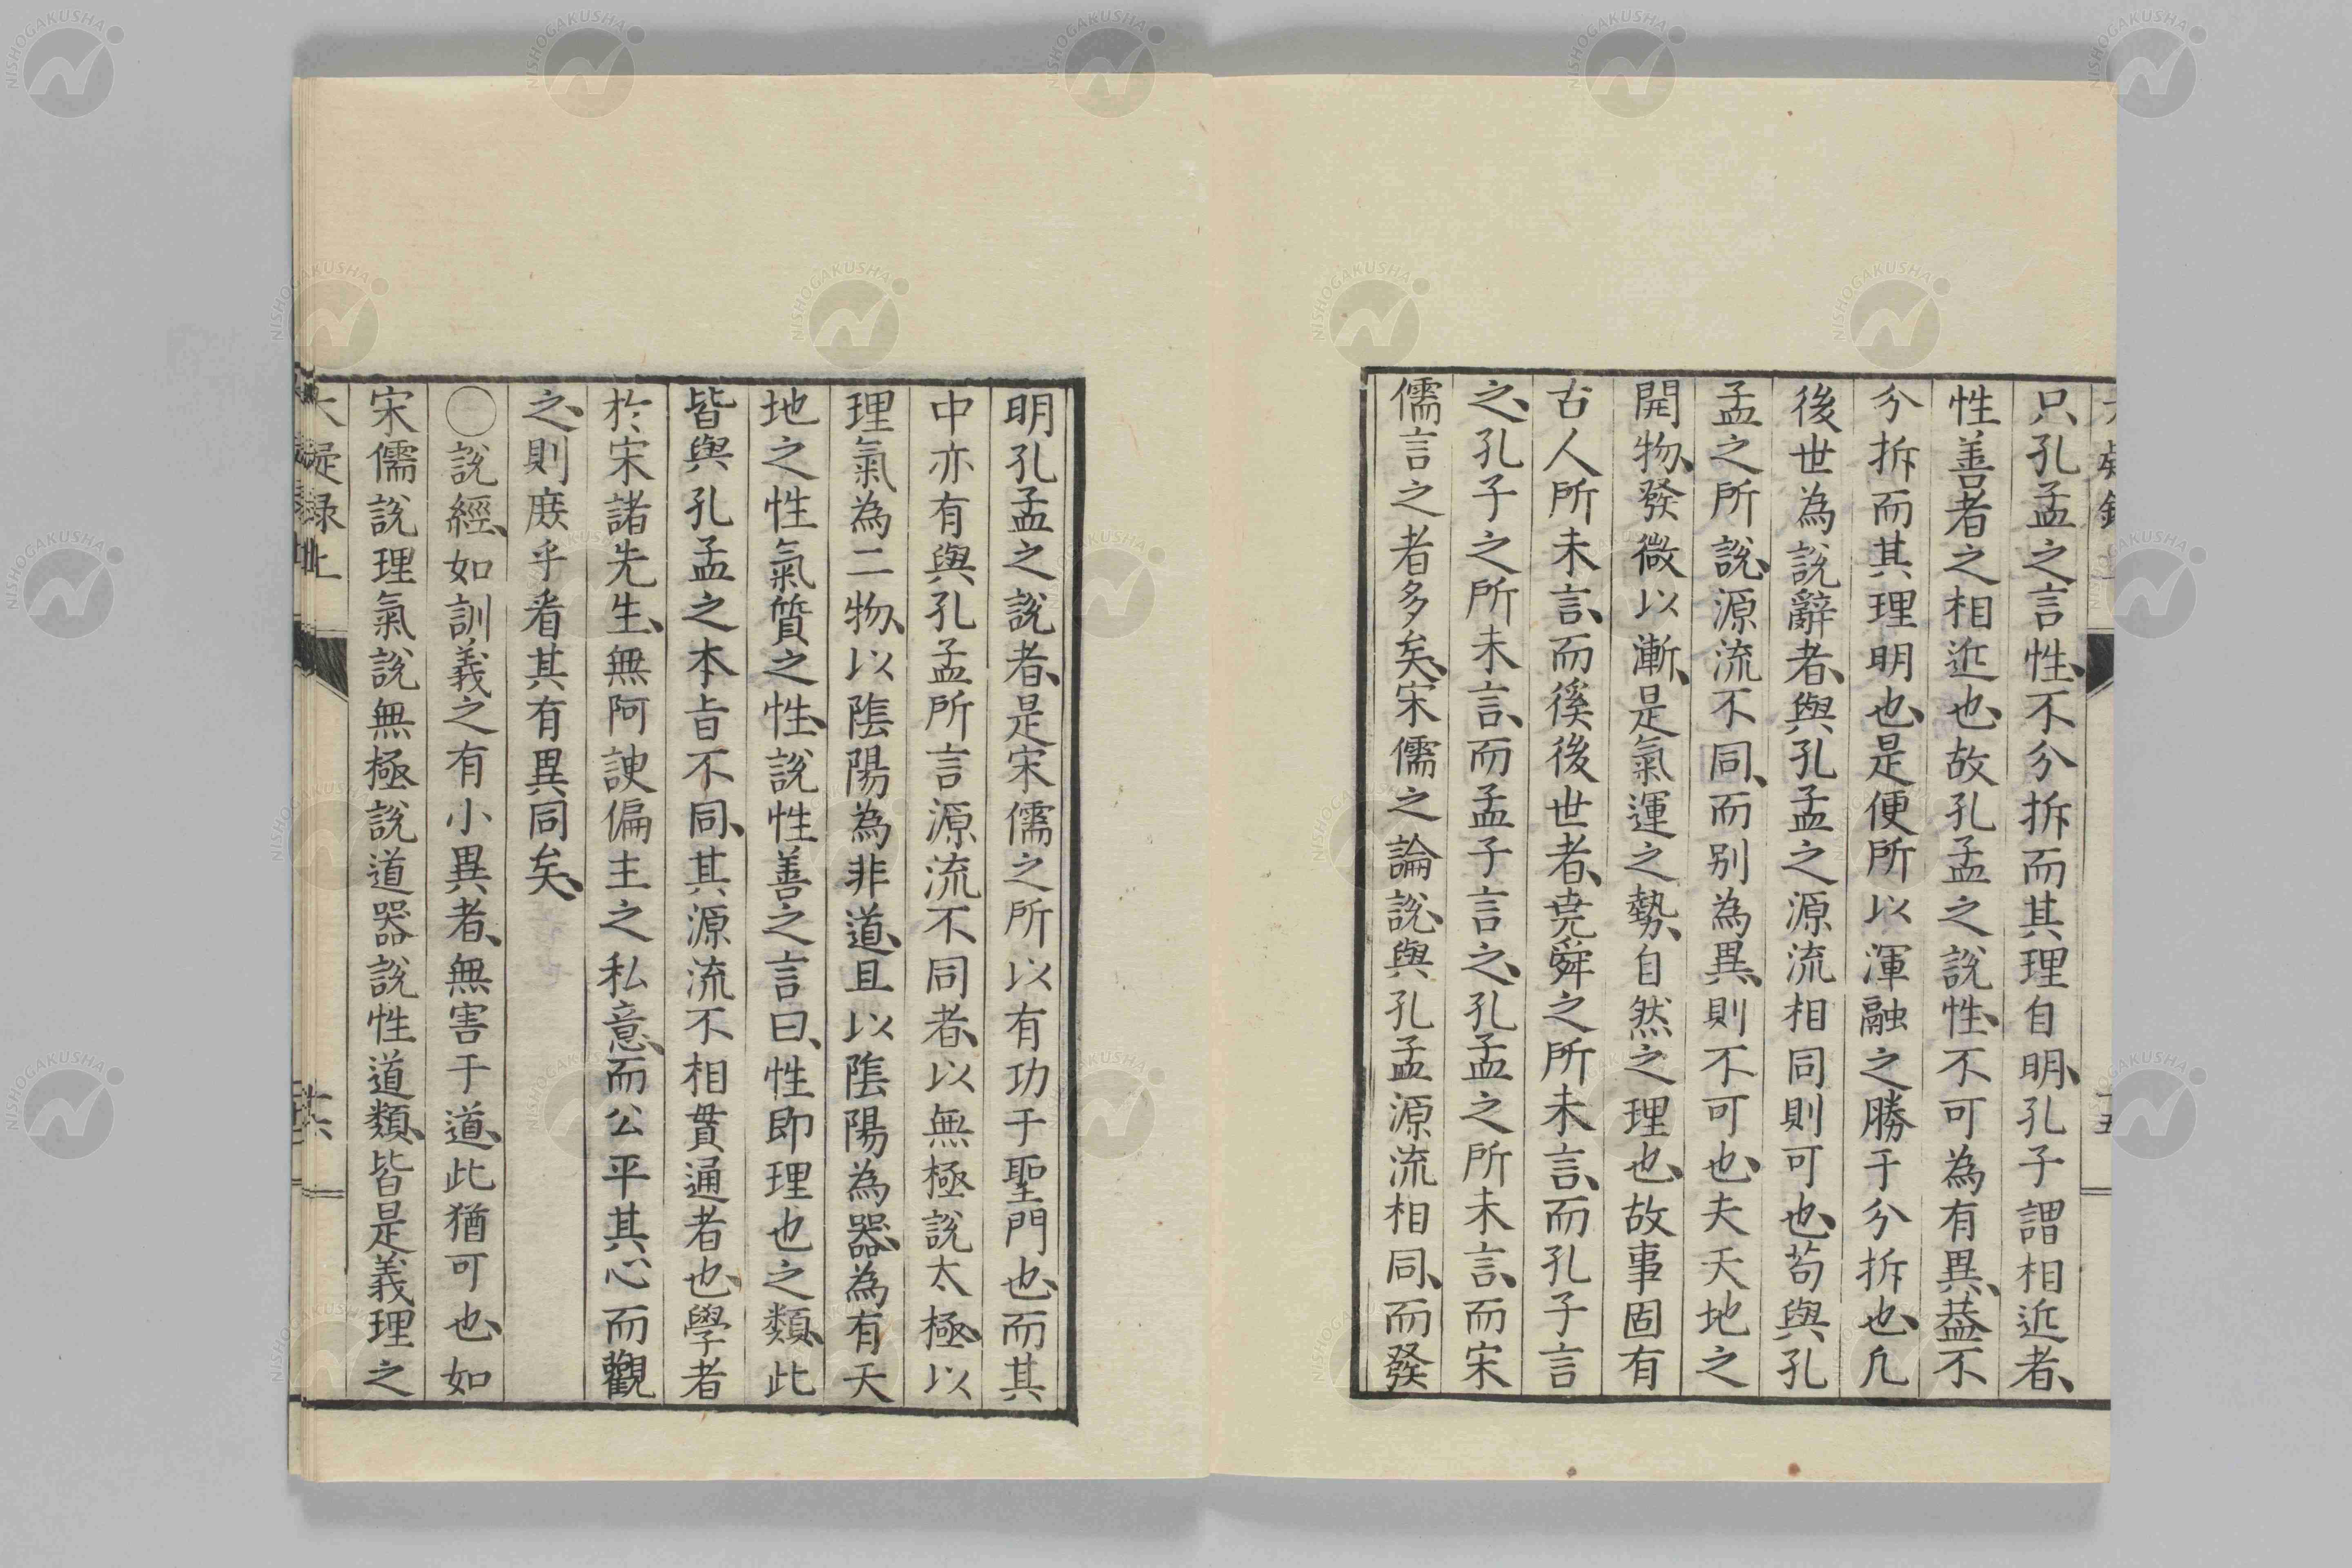 只孔孟之言性、不分拆而其理自明、孔子謂相近者、
性善者之相近也、故孔孟之說性、不可為有異、葢不
分拆而其理明也、是便所以渾融之勝于分拆也、凢
後世為說辭者、與孔孟之源流相同則可也、苟與孔
孟之所說、源流不同、而别為異、則不可也、夫天地之
開物、發微以漸、是氣運之勢、自然之理也、故事固有
古人所未言、而後後世者、堯舜之所未言、而孔子言
之、孔子之所未言、而孟子言之、孔孟之所未言、而宋
儒言之者多矣、宋儒之論說、與孔孟源流相同、而發
明孔孟之說者、是宋儒之所以有功于聖門也、而其
中亦有與孔孟所言源流不同者、以無極說太極、以
理氣為二物、以陰陽為非道、且以陰陽為器、為有天
地之性氣質之性、說性善之言曰、性即理也之類、此
皆與孔孟之本旨不同、其源流不相貫通者也、學者
於宋諸先生、無阿諛偏主之私意、而公平其心而觀
之、則庻乎看其有異同矣、
○說經、如訓義之有小異者、無害于道、此猶可也、如
宋儒說理氣說無極說道器說性道類、皆是義理之
大疑録上
十六
NISHOGAKUSHA